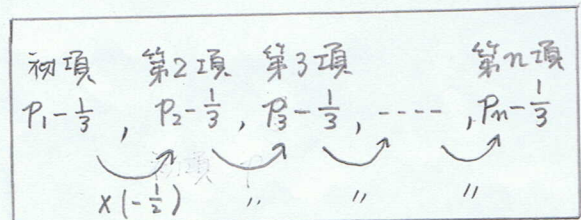 初項 第2項 第3項 第n項
P₁-1/3 , P₂-1/3 , P₃-1/3 , ---- , Pn-1/3
×(-1/2) 〃 〃 〃